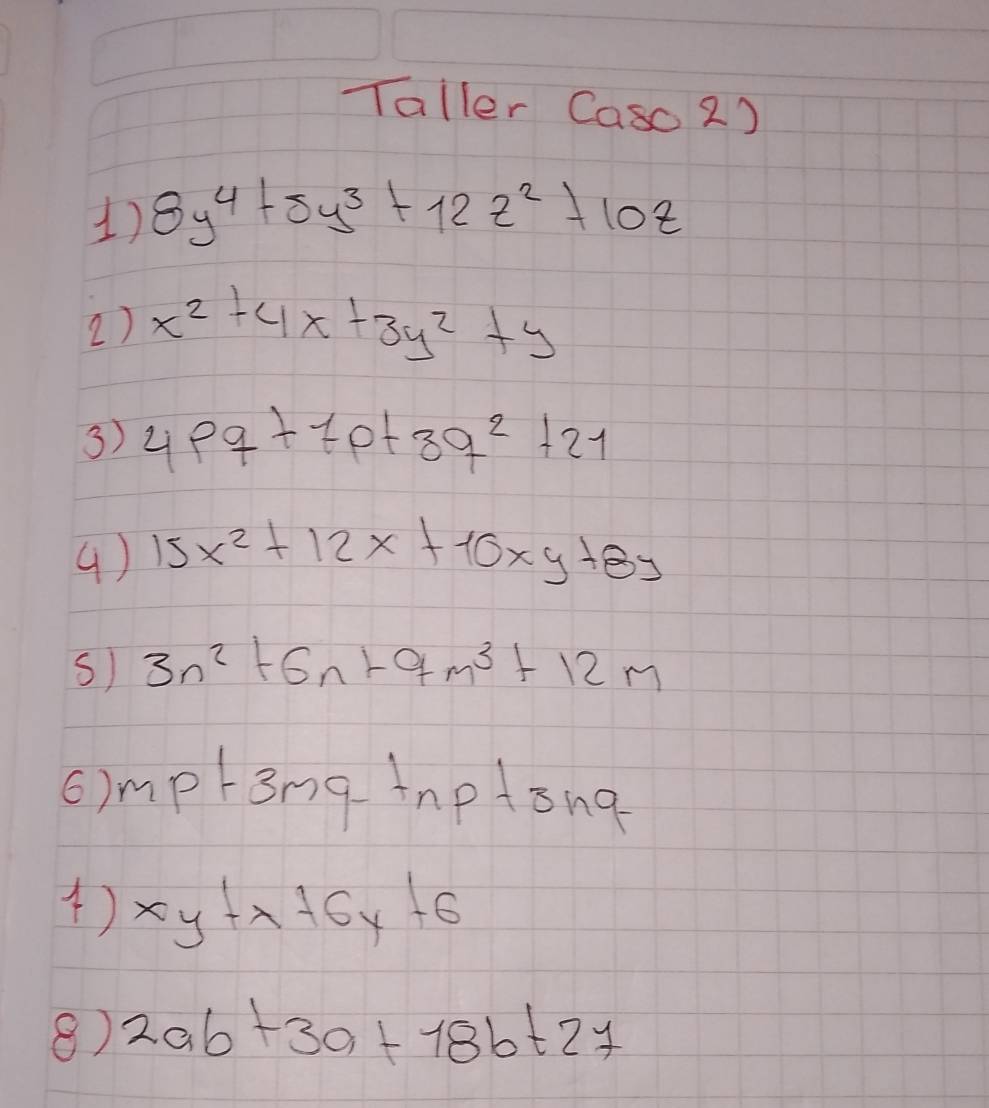 Taller Caso 2)
1) 8y⁴ + 5y³ + 12z² + 10z
2) x² + 4x + 3y² + y
3) 4pq + 7p + 3q² + 21
4) 15x² + 12x + 10xy + 8y
5) 3n² + 6n + 9m³ + 12m
6) mp + 3mq + np + 3nq
7) xy + x + 6y + 6
8) 2ab + 3a + 18b + 27